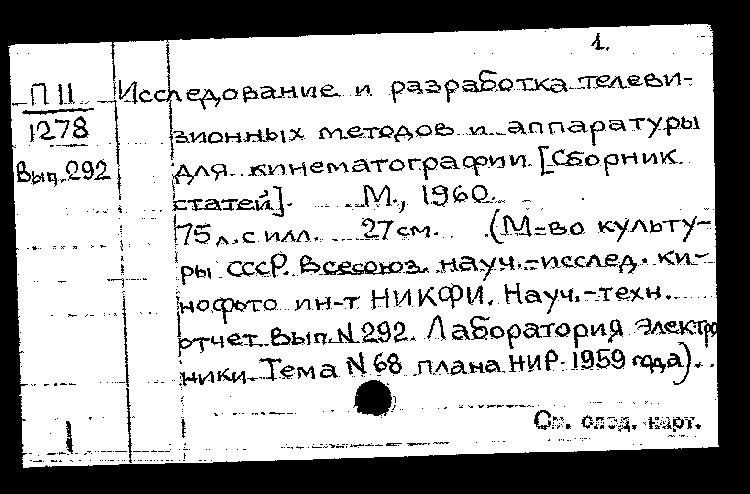 1.
П II
1278
Вып.292
Исследование и разработка телеви-
зионных методов и аппаратуры
для кинематографии. [Сборник
статей]. М., 1960.
75 л. с илл. 27 см. (М-во культу-
ры СССР. Всесоюз. науч.-исслед. ки-
нофото ин-т НИКФИ. Науч.-техн.
отчет Вып. N 292. Лаборатория электро
ники. Тема N 68 плана НИР 1959 года).
1
См. след. карт.